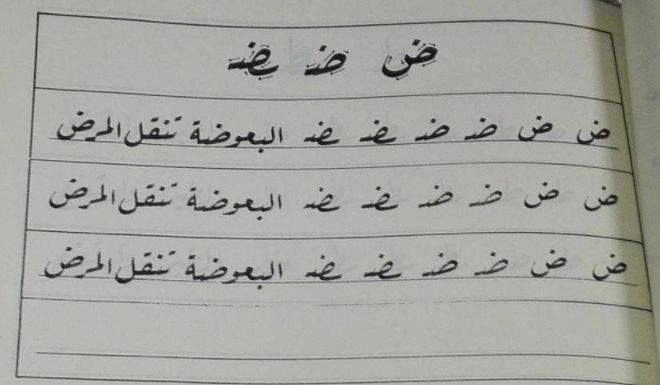 ض ضـ ـضـ
ض ض ضـ ضـ ـضـ ـضـ البعوضة تنقل المرض
ض ض ضـ ضـ ـضـ ـضـ البعوضة تنقل المرض
ض ض ضـ ضـ ـضـ ـضـ البعوضة تنقل المرض